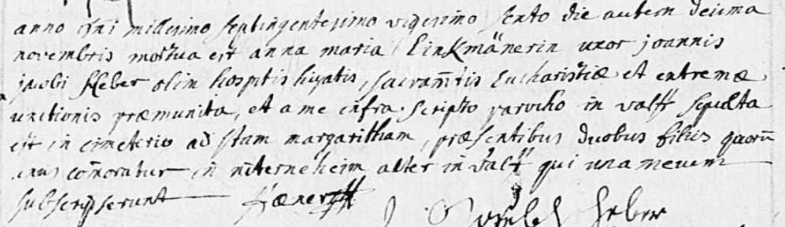 anno dni millesimo septingentesimo vigesimo sexto die autem decima
novembris mortua est anna maria Einkmänerin uxor joannis
jacobi Heber olim hospitis hujatis, sacramtis Eucharistiæ et extremæ
unctionis præmunita, et a me infra scripto parocho in valff sepulta
est in cimeterio ad stam margaritham, præsentibus duobus filiis quorū
unus comoratur in niterneheim, alter in valff qui una mecum
subscripserunt
heber